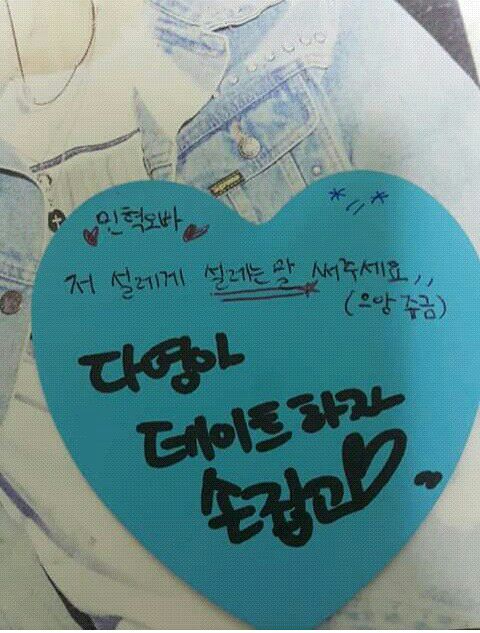 민혁오빠
저 설레게 설레는 말 써주세요,,
(으앙 쥬금)
다영아
데이트하자
손잡고♡.